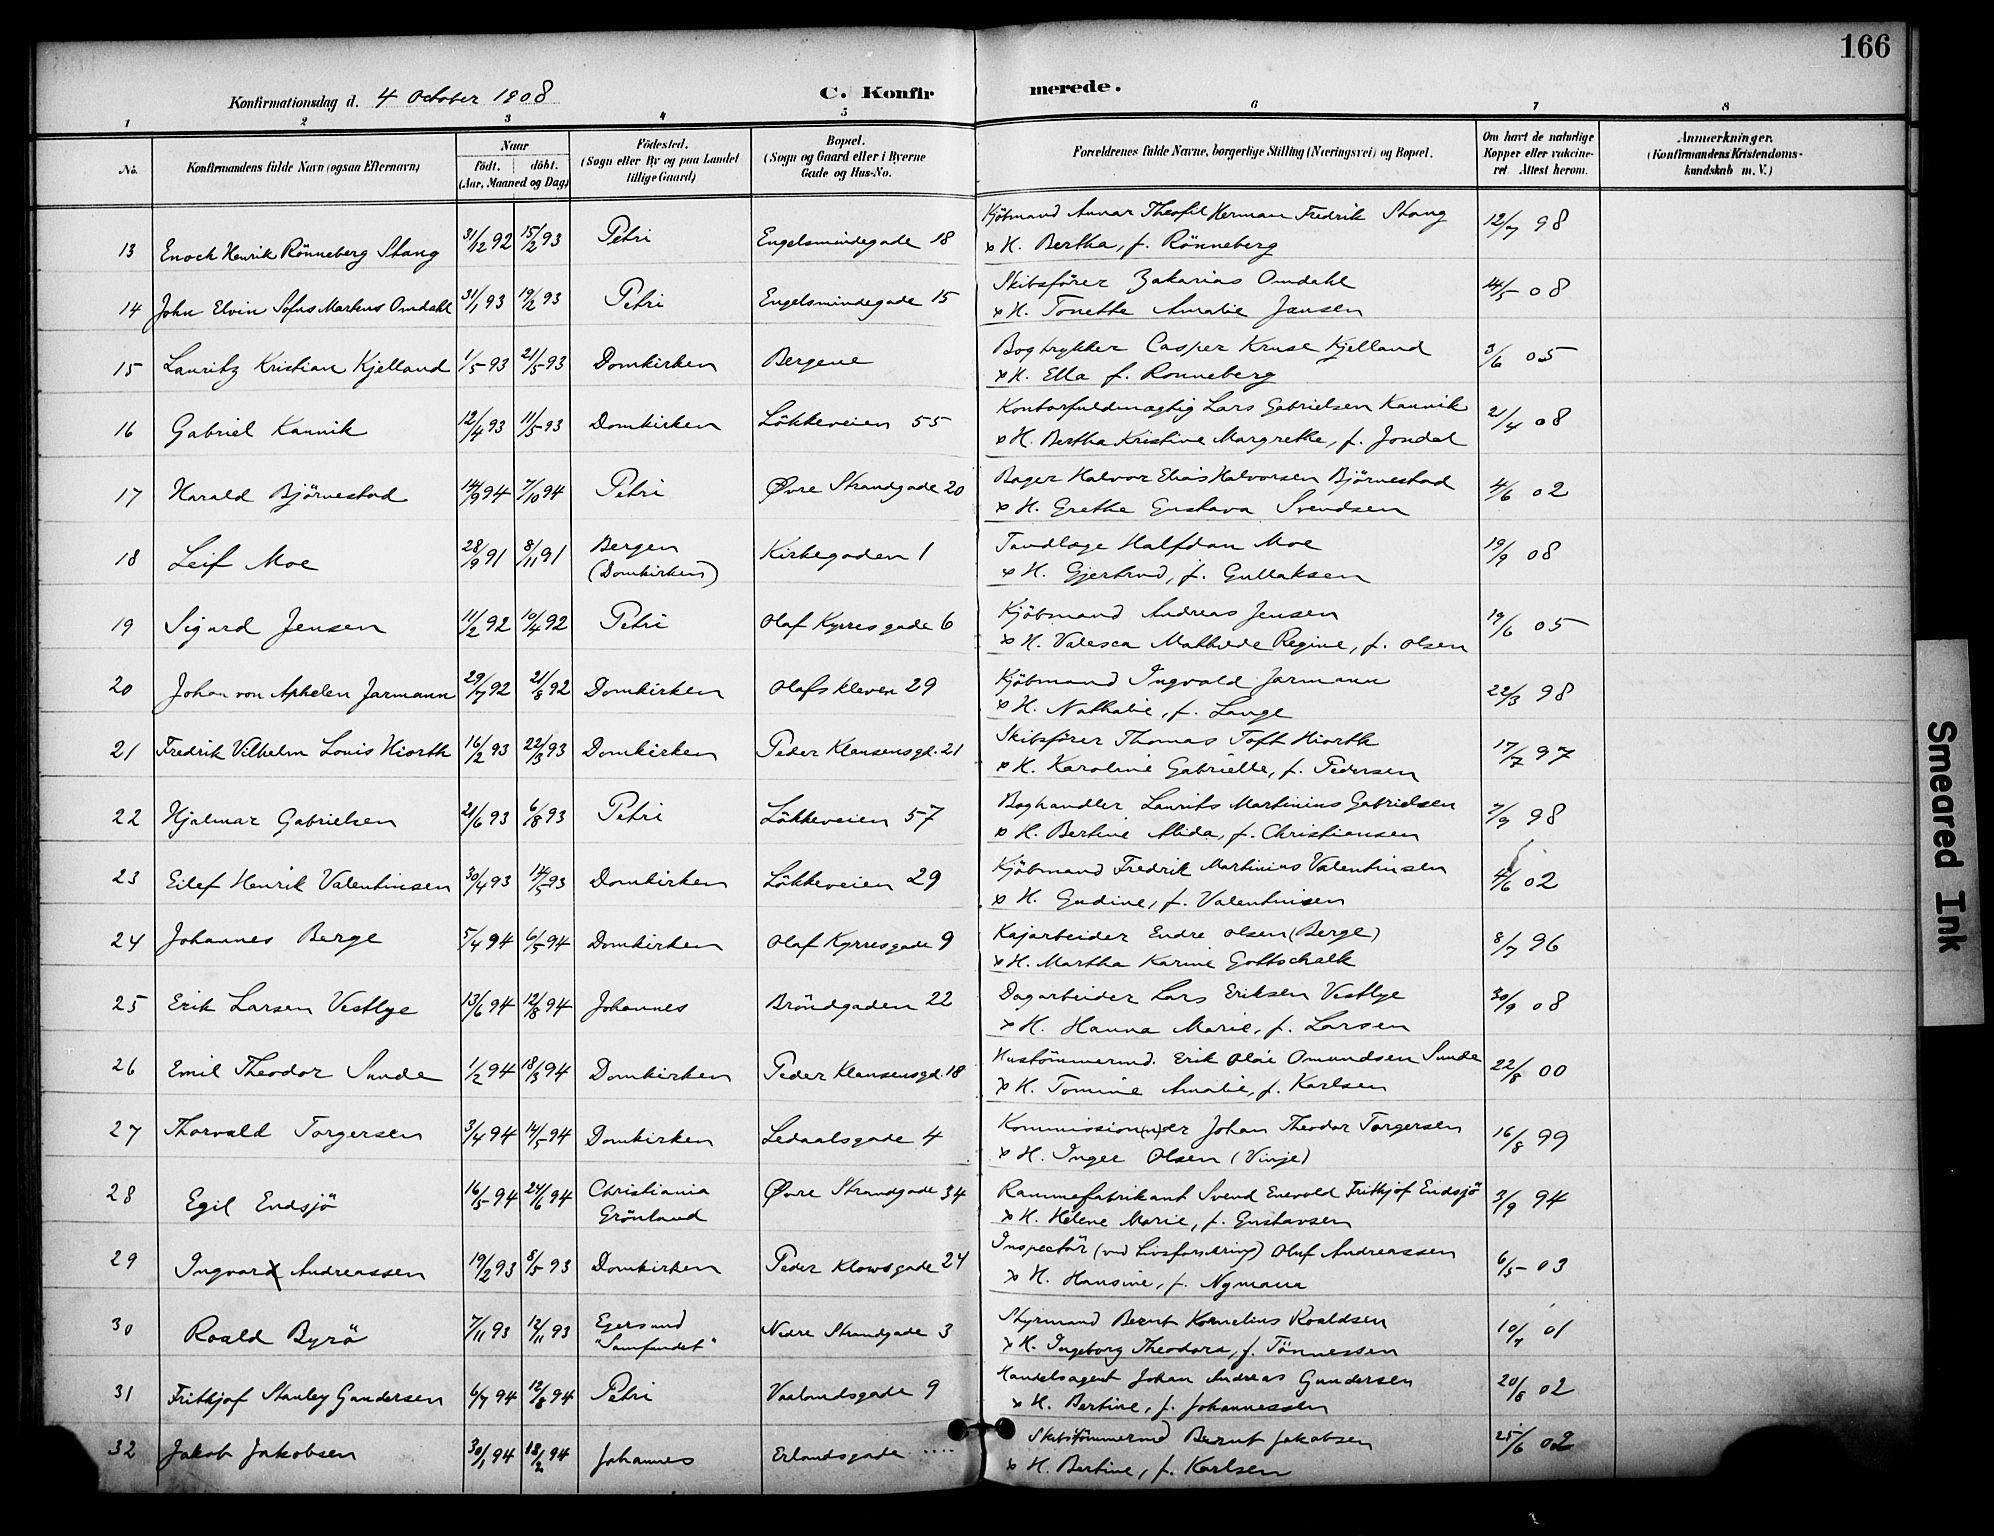 166
Konfirmationsdag d. 4 October 1908
C. Konfir merede.
1 2 3 4 5 6 7 8
No.
Konfirmandens fulde Navn (ogsaa Efternavn)
Naar
født. døbt.
(Aar, Maaned og Dag)
Fødested.
(Sogn eller By og paa Landet
tillige Gaard)
Bopæl.
(Sogn og Gaard eller i Byerne
Gade og Hus-No.
Forældrenes fulde Navne, borgerlige Stilling (Næringsvei) og Bopæl.
Om havt de naturlige
Kopper eller vakcine-
ret. Attest herom.
Anmærkninger.
(Konfirmandens Kristendoms-
kundskab m. V.)
13 Enoch Henrik Rönneberg Stang 31/12 92 15/2 93 Petri Engelsmindegade 18 Kjöbmand Annar Theofil Herman Fredrik Stang 12/7 98
x H. Bertha, f. Rönneberg
14 John Elvin Sofus Markus Omdahl 31/1 93 19/2 93 Petri Engelsmindegade 15 Skibsförer Zakarias Omdahl 14/5 08
x H. Tonette Amalie Jansen
15 Lauritz Kristian Kjelland 1/5 93 21/5 93 Domkirken Bergene Bogtrykker Casper Kruse Kjelland 3/6 05
x H. Ella f. Ronneberg
16 Gabriel Kannik 12/4 93 11/5 93 Domkirken Lökkeveien 55 Kontorfuldmægtig Lars Gabrielsen Kannik 21/4 08
x H. Bertha Kristine Margrethe, f. Jondal
17 Harald Björnestad 14/9 94 7/10 94 Petri Øvre Strandgade 20 Bager Halvor Elias Halvorsen Björnestad 4/6 02
x H. Grethe Gustava Svendsen
18 Leif Moe 28/9 91 8/11 91 Bergen
(Domkirken) Kirkegaden 1 Tandlæge Halfdan Moe 19/9 08
x H. Gjertrud, f. Gullaksen
19 Sigurd Jensen 11/2 92 10/4 92 Petri Olaf Kyrresgade 6 Kjöbmand Andreas Jensen 19/6 05
x H. Valesca Mathilde Regine, f. Olsen
20 Johan von Aphelen Jarmann 29/7 92 21/8 92 Domkirken Olafs Kleven 29 Kjöbmand Ingvald Jarmann 22/3 98
x H. Nathalie, f. Lange
21 Fredrik Vilhelm Louis Hiorth 16/2 93 22/3 93 Domkirken Peder Klausensgd. 21 Skibsförer Thomas Toft Hiorth 17/7 97
x H. Karoline Gabrielle, f. Pedersen
22 Hjalmar Gabrielsen 21/6 93 6/8 93 Petri Lökkeveien 57 Boghandler Laurits Martinius Gabrielsen 7/9 98
x H. Bertine Alida, f. Christiansen
23 Eilef Henrik Valentinsen 30/4 93 14/5 93 Domkirken Lökkeveien 29 Kjöbmand Fredrik Martinius Valentinsen 4/6 02
x H. Gudine, f. Valentinsen
24 Johannes Berge 5/4 94 6/5 94 Domkirken Olaf Kyrresgade 9 Kajarbeider Endre Olsen (Berge) 8/7 96
x H. Martha Karine Gottschalk
25 Erik Larsen Vestlye 13/6 94 12/8 94 Johannes Bröndgaden 22 Dagarbeider Lars Eriksen Vestlye 30/9 08
x H. Hanna Marie, f. Larsen
26 Emil Theodor Sunde 1/2 94 18/3 94 Domkirken Peder Klausensgd. 18 Hustömmermd. Erik Olai Omundsen Sunde 22/8 00
x H. Tomine Amalie, f. Karlsen
27 Thorvald Torgersen 3/4 94 14/5 94 Domkirken Ledaalsgade 4 Kommission(n)ær Johan Theodor Torgersen 16/8 99
x H. Inger Olsen (Vinje)
28 Egil Endsjö 16/5 94 24/6 94 Christiania
Grönland Øvre Strandgade 34 Rammefabrikant Svend Enevold Frithjof Endsjö 3/9 94
x H. Helene Marie, f. Gustavsen
29 Ingvard Andreassen 19/2 93 8/5 93 Domkirken Peder Klowsgade 24 Inspectör (ved Livsforsikring) Oluf Andreassen 6/5 03
x H. Hansine, f. Nymann
30 Roald Byrö 7/11 93 12/11 93 Egersund
"Samfundet" Nedre Strandgade 3 Styrmand Bernt Kornelius Roaldsen 10/7 01
x H. Ingeborg Theodora, f. Tönnessen
31 Frithjof Stanley Gundersen 6/7 94 12/8 94 Petri Vaalandsgade 9 Handelsagent Johan Andreas Gundersen 20/8 02
x H. Bertine, f. Johannessen
32 Jakob Jakobsen 30/1 94 18/2 94 Johannes Erlandsgade .... Skibstömmermd Bernt Jakobsen 25/6 02
x H. Bertine, f. Karlsen
Smeared Ink